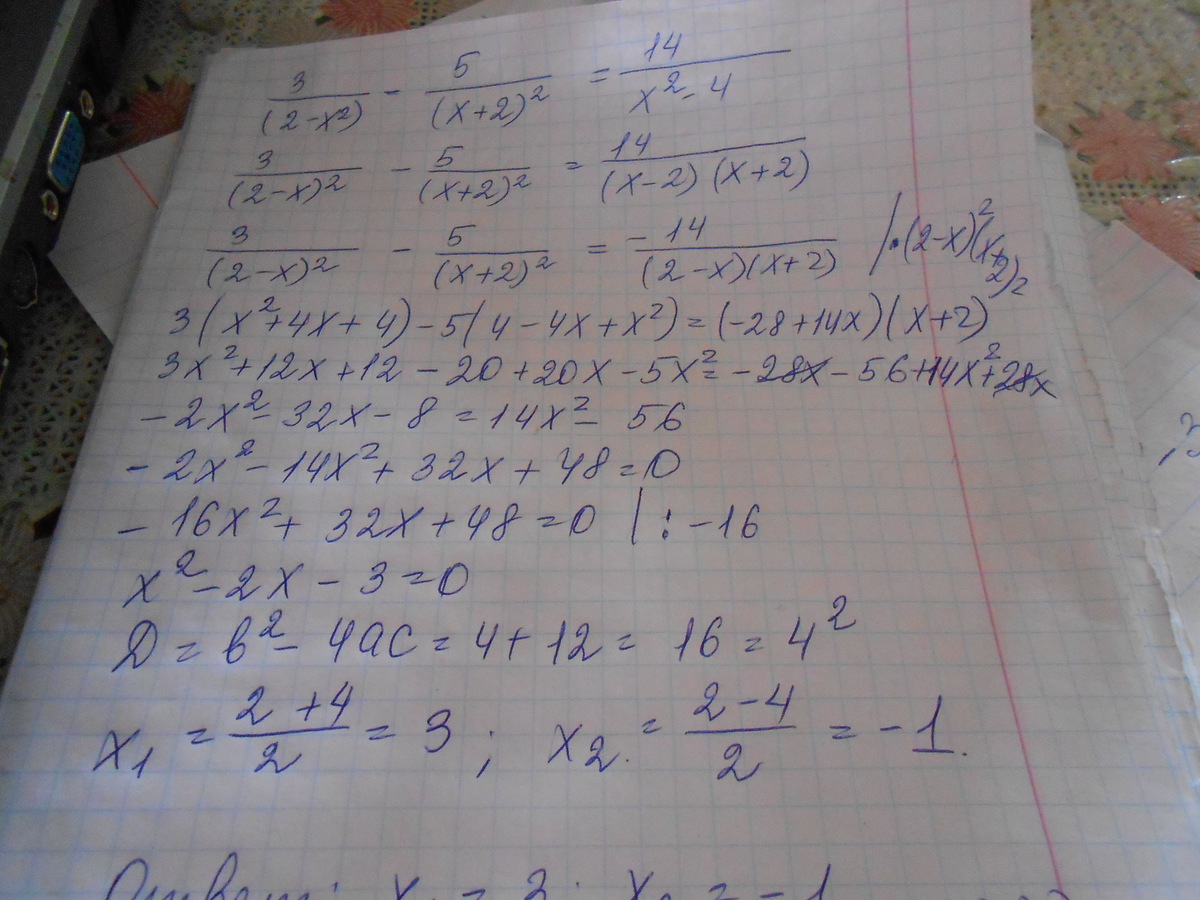 3/(2-x²) - 5/(x+2)² = 14/x²-4
3/(2-x)² - 5/(x+2)² = 14/(x-2)(x+2)
3/(2-x)² - 5/(x+2)² = -14/(2-x)(x+2) |·(2-x)²(x+2)²
3(x²+4x+4)-5(4-4x+x²)=(-28+14x)(x+2)
3x²+12x+12-20+20x-5x²=-28x-56+14x²+28x
-2x²-32x-8=14x²-56
-2x²-14x²+32x+48=0
-16x²+32x+48=0 |:-16
x²-2x-3=0
D=b²-4ac=4+12=16=4²
x₁=2+4/2=3; x₂=2-4/2=-1.
Ответ: x₁=3; x₂=-1